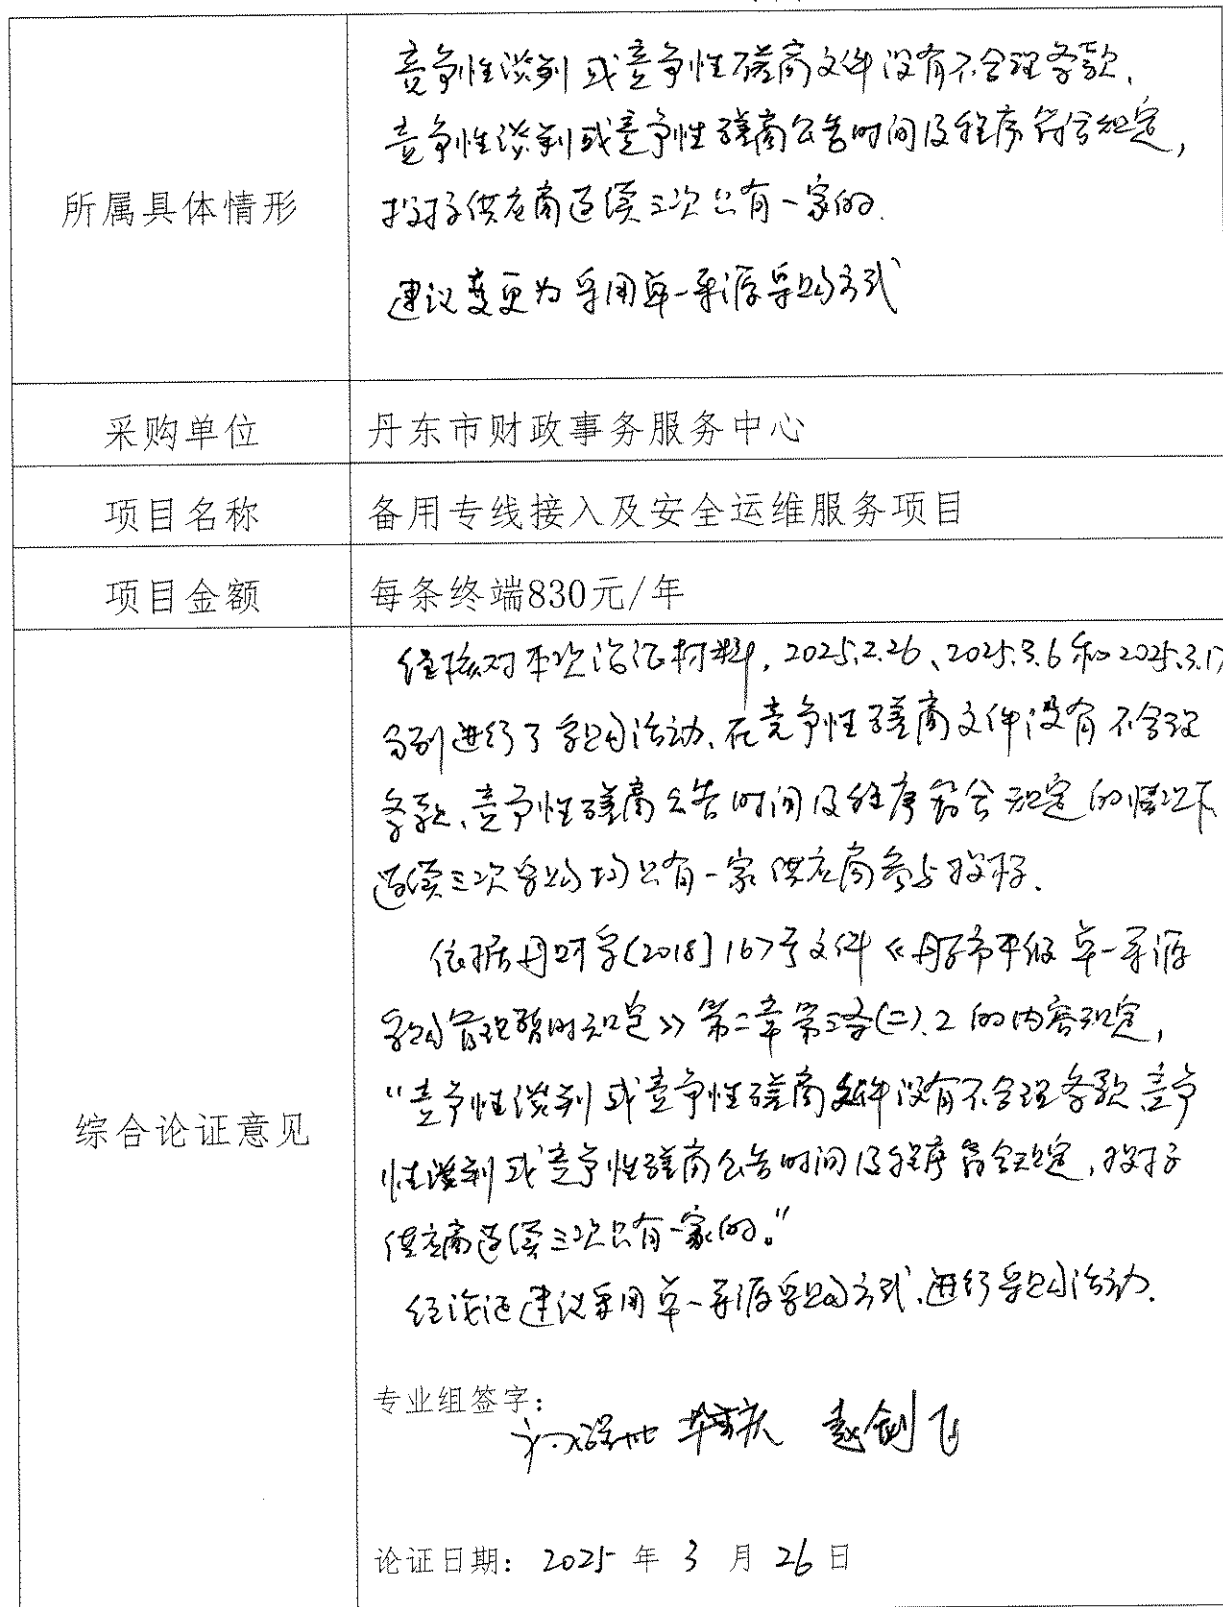 竞争性谈判或竞争性磋商文件没有不合理条款、
竞争性谈判或竞争性磋商公告时间及程序符合规定，
投标供应商连续三次只有一家的。
建议变更为采用单一来源采购方式
所属具体情形
采购单位
丹东市财政事务服务中心
项目名称
备用专线接入及安全运维服务项目
项目金额
每条终端830元/年
经核对本次论证材料，2025.2.26、2025.3.6和2025.3.17
分别进行了采购活动、在竞争性磋商文件没有不合理
条款、竞争性磋商公告时间及程序符合规定的情况下
连续三次采购均只有一家供应商参与投标.
依据丹财采[2018]167号文件《丹东市本级单一来源
采购管理暂时规定》第二章第三条(二).2的内容规定，
“竞争性谈判或竞争性磋商文件没有不合理条款、竞争
性谈判或竞争性磋商公告时间及程序符合规定，投标
供应商连续三次只有一家的。”
经论证建议采用单一来源采购方式、进行采购活动.
综合论证意见
专业组签字：
赵剑飞
论证日期：2025年3月26日